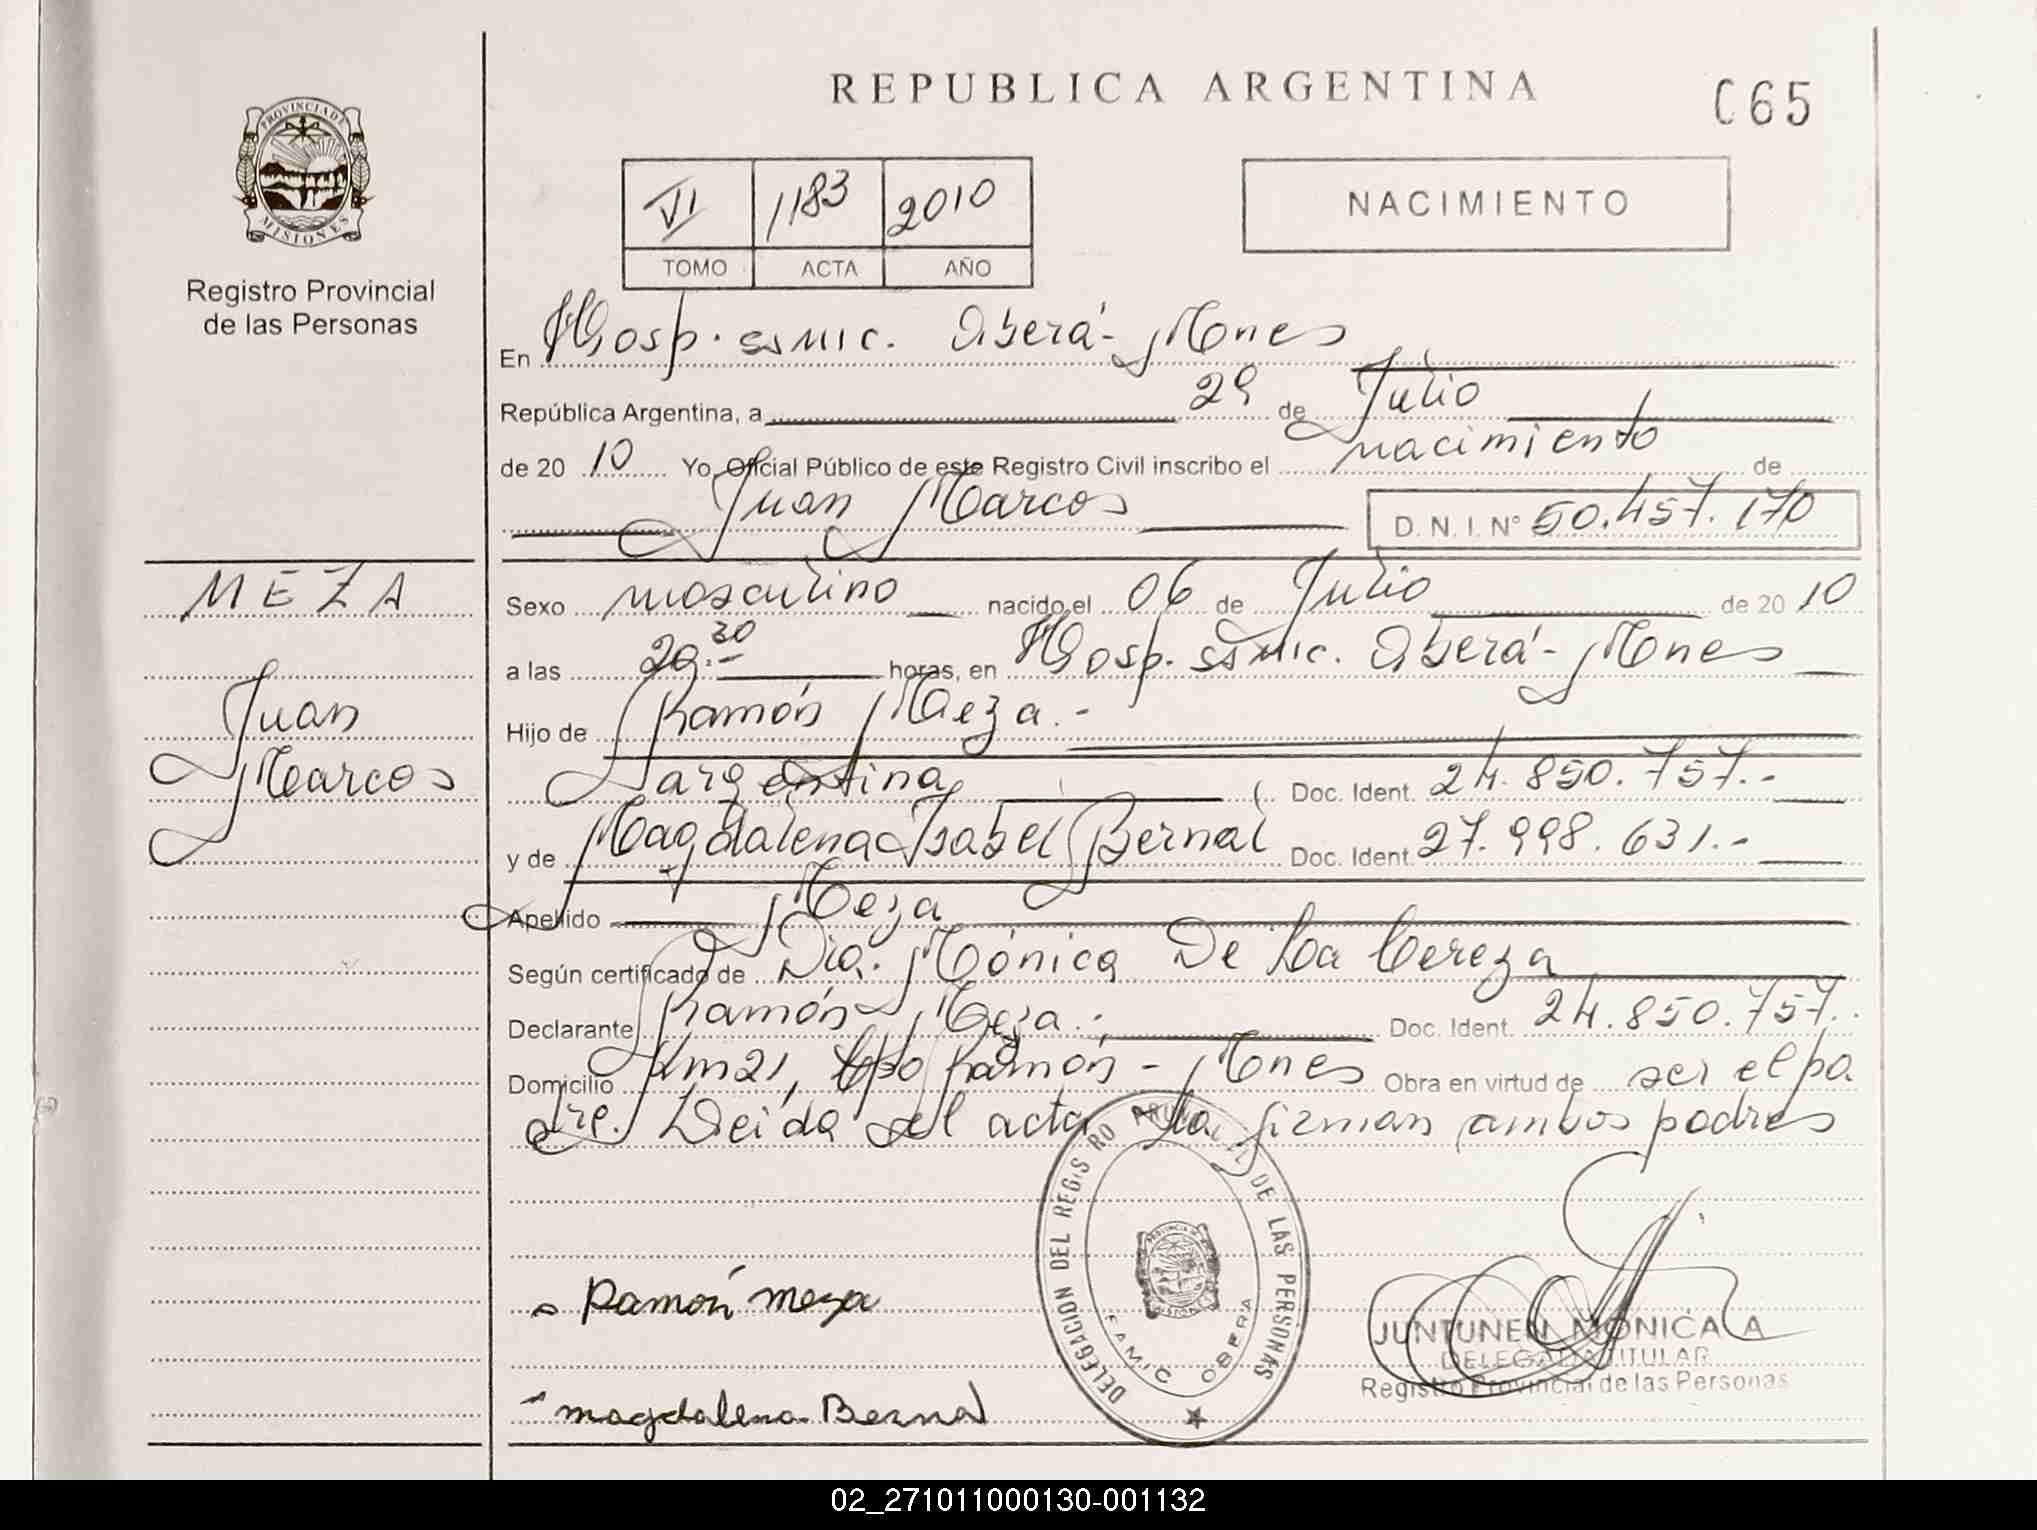 REPUBLICA ARGENTINA
C65
PROVINCIA DE
MISIONES
Registro Provincial
de las Personas
VI 1183 2010
TOMO ACTA AÑO
NACIMIENTO
En Hosp. SAMIC. Oberá - Mnes
República Argentina, a 29 de Julio
de 20 10 Yo Oficial Público de este Registro Civil inscribo el nacimiento de
Juan Marcos D. N. I. N° 50.457.170
MEZA
Juan
Marcos
Sexo masculino nacido el 06 de Julio de 20 10
a las horas, en Hosp. SAMIC. Oberá - Mnes
Hijo de Ramón Meza.-
argentina Doc. Ident. 24.850.757.-
y de Magdalena Isabel Bernal Doc. Ident. 27.998.631.-
Apellido Meza
Según certificado de Dra. Mónica De La Cereza
Declarante Ramón Meza.- Doc. Ident. 24.850.757.
Domicilio Km 21, Cpo Ramón - Mnes Obra en virtud de ser el pa
dre. Leida el acta la firman ambos padres
DELEGACION DEL REGISTRO PROVINCIAL DE LAS PERSONAS
SAMIC OBERA
Ramón meza
magdalena Bernal
JUNTUNEN MONICA A
DELEGADA TITULAR
Registro Provincial de las Personas
02_271011000130-001132